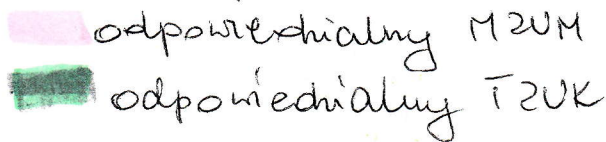 odpowiedzialny MZUM
odpowiedzialny TZUK